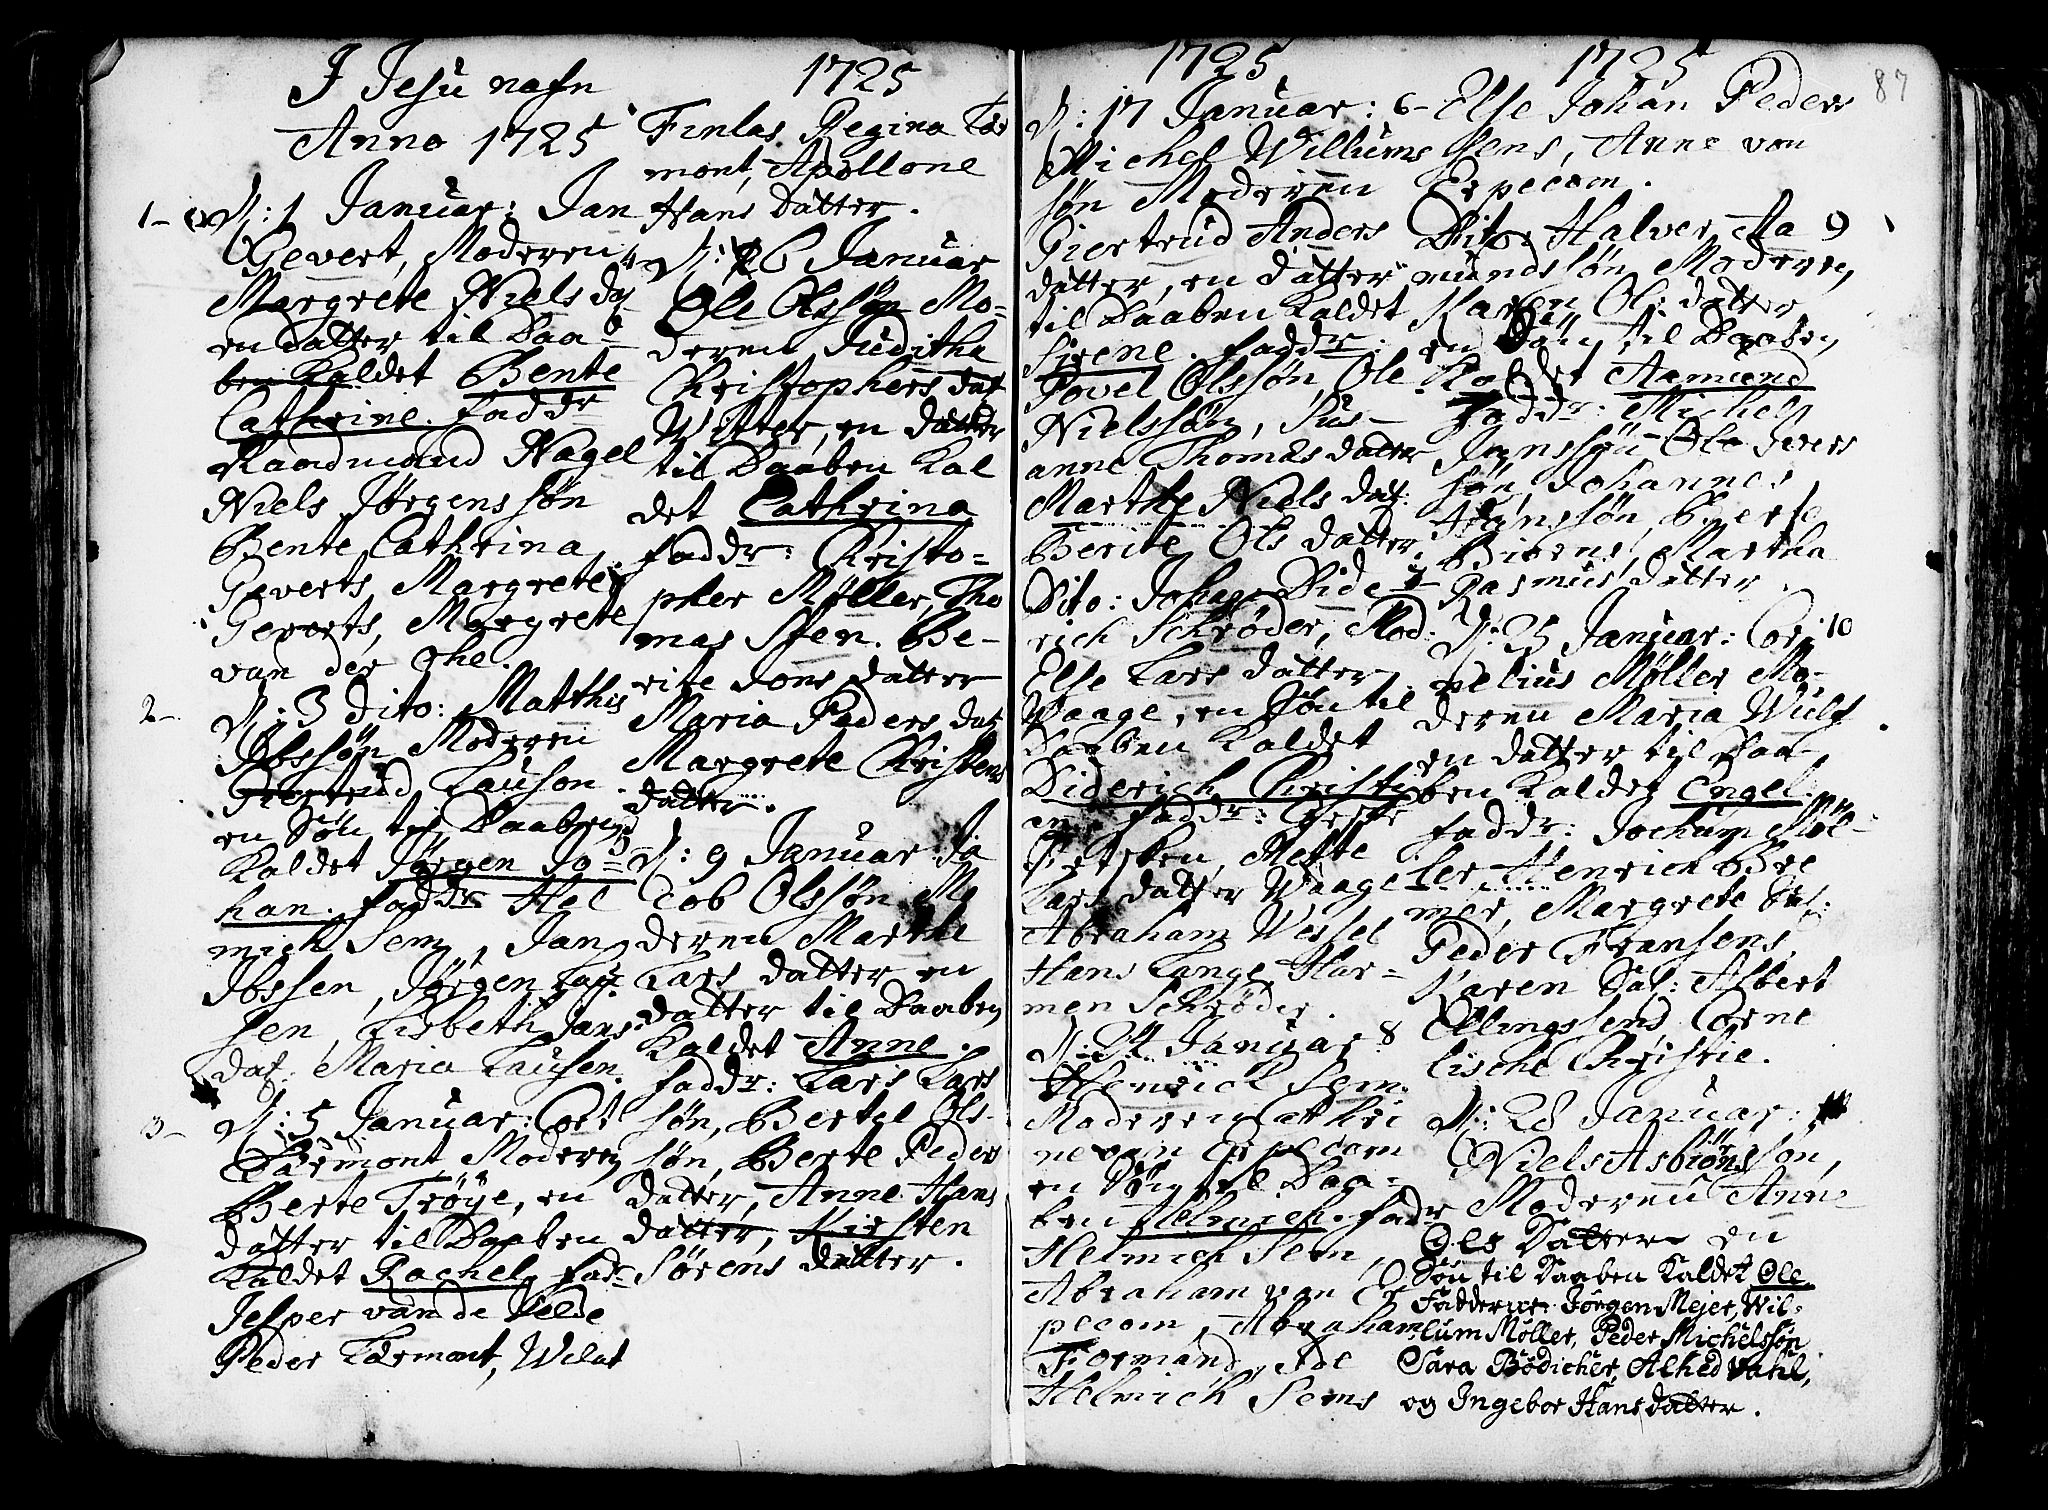 I Jesu nafn
Anno 1725
1- D: 1 Januar: Jan
Gevert, Moderen
Margrete Niels dat
en datter til Daa=
ben Kaldet Bente
Cathrine. faddr
Raadmand Nagel
Niels Jørgenssøn
Bente Cathrina
Geverts, Margrete
Geverts, Margrete
van der Ohe.
2- D: 3 dito: Matthis
Ibssøn Moderen
Giertrud Lauson.
en Søn til Daaben
Kaldet Jørgen Jo=
han. faddr Hel
mich Sem, Jan
Ibssen, Jørgen Lau
sen, Lisbeth Jans
dat: Maria Lausen.
3- D: 5 Januar: Cort
Lærmont Moderen
Berte Trøye, en
datter til Daaben
Kaldet Rachel, fadr
Jesper van de Velde
Peder Lærmont, Wilat
1725
Finlas, Regina Lær
mont, Apollone
Hans datter.
4- D: 6 Januar
Ole Olssøn Mo=
deren Juditha
Christophers dat
Witter, en datter
til Daaben Kal
det Cathrina
faddr: Christo=
pher Møller, Tho
mas Sten. Be=
rite Jons datter
Maria Peders dat
Margrete Christens
datter.
5 D: 9 Januar Ja
cob Olssøn Mo
deren Marthe
Lars datter en
datter til Daaben
Kaldet Anne.
faddr: Lars Lars
søn, Bertel Ols=
søn, Berte Peders
datter, Anne Hans
datter, Kirsten
Sørens datter.
1725
D: 17 Januar: 6-
Michel Willums
søn Moderen
Giertrud Anders
datter, en datter
til Daaben Kaldet
Sirene. faddr:
Povel Olssøn, Ole
Nielssøn, Sus=
anne Thomas datter
Marthe Niels dat:
Berite Ols datter.
Dito: Johan Dide 7-
rich Schrøder, Mod:
Else Lars datter
Waage, en Søn til
Daaben Kaldet
Diderich Christi
an, faddr:
Mette
Lars datter Waage
Abraham Wessel
Hans Lange, Har=
men Schrøder.
D: 24 Januar: 8
Henrich Sem.
Moderen Cathri
ne van Erpecom
en Søn til Daa=
ben Helmich. fadr
Helmich Sem,
Abraham van Er
pecom, Abraham
Formand, Ide
Helmich Sems
1725
87
Else Johan Peder
sens, Anne van
Erpecom.
Dito: Halver Aa 9
mundssøn Moderen
Karen Ols datter
en Søn til Daaben
Kaldet Aamund
faddr: Michel
Jenssøn Ole Ivers
søn, Johannes
Hanssøn, Berte
Birens, Martha
Rasmus datter.
D: 25 Januar: Cor 10
nelius Møller Mo=
deren Maria Wulf.
en datter til Daa=
ben Kaldet Engel.
faddr: Jochum Møl=
ler Henrich Bre
mer, Margrete Sal:
Peder Fransens,
Karen Sal: Albert
Ellingssens, Corne
lische Christie.
D: 28 Januar:
Niels Asbiørnssøn,
Moderen Anne
Ols Datter en
Søn til Daaben Kaldet Ole.
Fadderne: Jørgen Mejer, Wil=
lum Møller, Peder Michelssøn
Sara Bødicher, Alhed Vahl,
og Ingebor Hans datter.